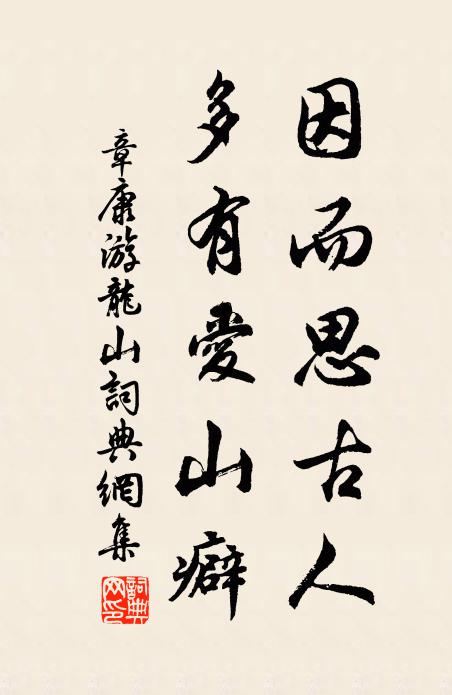 因而思古人
多有愛山癖
章康游龍山詞典網集
詞典
网印